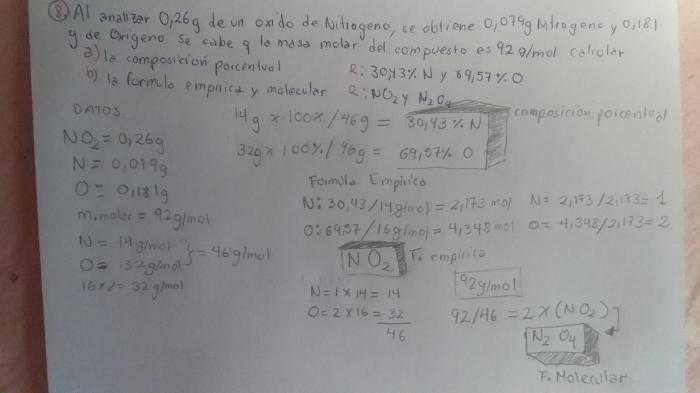 8) Al analizar 0,26g de un oxido de Nitrogeno, se obtiene 0,079g Nitrogeno y 0,181
g de Oxigeno se sabe q la masa molar del compuesto es 92 g/mol calcular
a) la composición porcentual R: 30,43% N y 69,57% O
b) la formula empirica y molecular R: NO2 y N2O4
DATOS
NO2 = 0,26g
N = 0,079g
O = 0,181g
m.molar = 92g/mol
N = 14g/mol
O = 32g/mol } = 46g/mol
16x2 = 32g/mol
14g x 100% / 46g = 30,43% N
32g x 100% / 46g = 69,57% O
composición porcentual
Formula Empirica
N: 30,43/14g/mol = 2,173 mol N = 2,173/2,173 = 1
O: 69,57/16g/mol = 4,348 mol O = 4,348/2,173 = 2
NO2 F. empirica
N = 1 x 14 = 14
O = 2 x 16 = 32
46
92g/mol
92/46 = 2 x (NO2)
N2 O4
F. Molecular